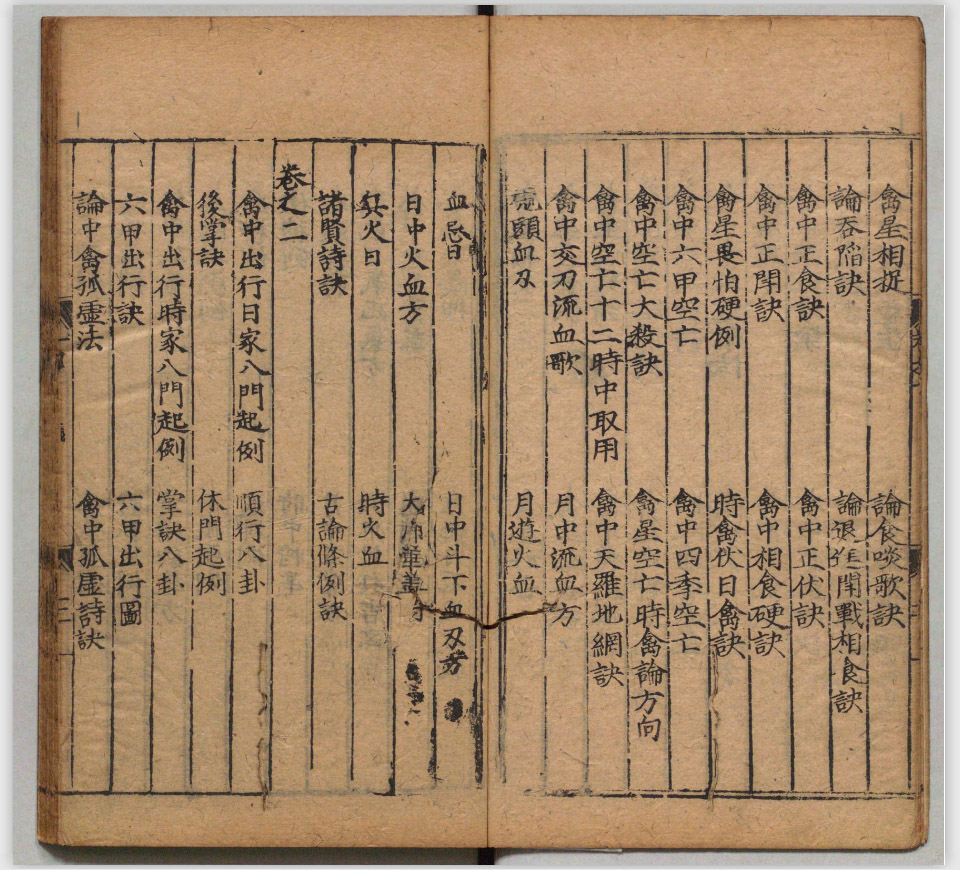 禽星相捉 論食啖歌訣
論吞陷訣 論退 戰相食訣
禽中正食訣 禽中正伏訣
禽中正閗訣 禽中相食硬訣
禽星畏怕硬例 時禽伏日禽訣
禽中六甲空亡 禽中四季空亡
禽中空亡大殺訣 禽星空亡時禽論方向
禽中空亡十二時中取用 禽中天羅地網訣
禽中交刃流血歌 月中流血方
頭血刃 月遊火血
血忌日 日中斗下血刃方
日中火血方 大
兵火日 時火血
諸賢詩訣 古論條例訣
卷之二
禽中出行日家八門起例 順行八卦
後掌訣 休門起例
禽中出行時家八門起例 掌訣八卦
六甲出行訣 六甲出行圖
論中禽孤虛法 禽中孤虛詩訣